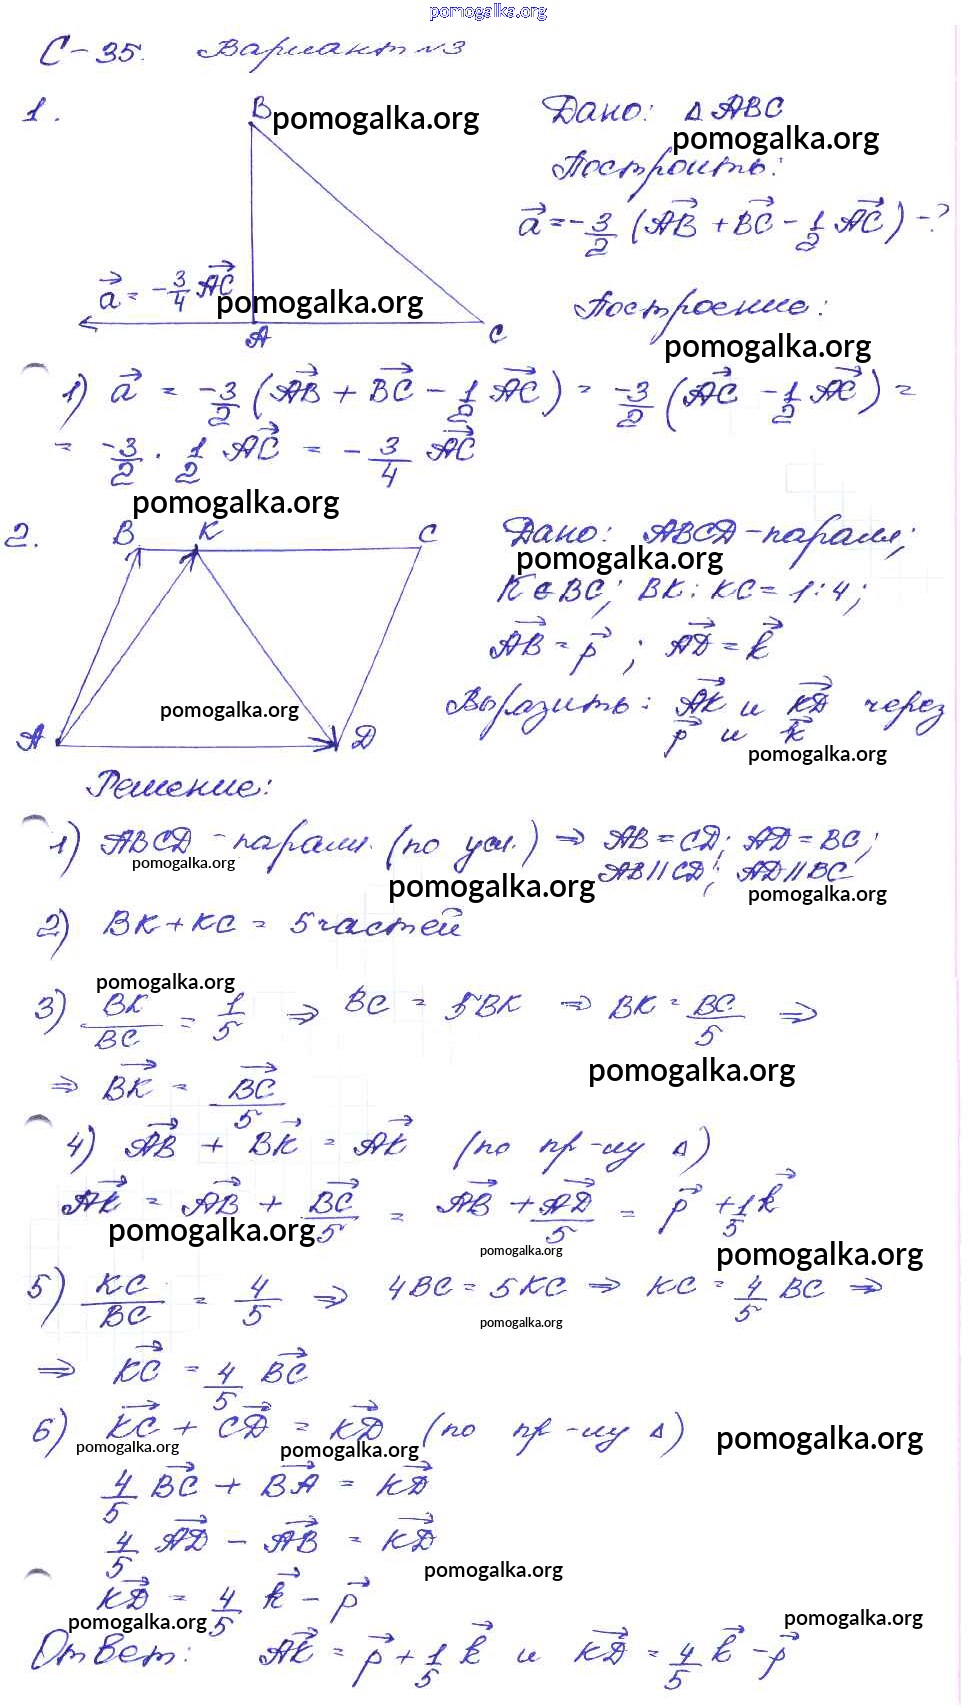 pomogalka.org
С-35. Вариант №3
1.
B pomogalka.org
Дано: △ ABC
pomogalka.org
Построить:
a⃗ = -3/2 (AB⃗ + BC⃗ - 1/2 AC⃗) - ?
a⃗ = -3/4 AC⃗
pomogalka.org
A C
Построение:
pomogalka.org
1) a⃗ = -3/2 (AB⃗ + BC⃗ - 1/2 AC⃗) = -3/2 (AC⃗ - 1/2 AC⃗) =
= -3/2 · 1/2 AC⃗ = -3/4 AC⃗
pomogalka.org
2.
B K C
A D
pomogalka.org
Дано: ABCD - паралл;
pomogalka.org
K ∈ BC; BK : KC = 1:4;
AB⃗ = p⃗ ; AD⃗ = k⃗
Выразить: AK⃗ и KD⃗ через
p⃗ и k⃗
pomogalka.org
Решение:
1) ABCD - паралл. (по усл.) ⇒ AB = CD; AD = BC;
AB || CD; AD || BC
pomogalka.org
pomogalka.org
pomogalka.org
2) BK + KC = 5 частей
pomogalka.org
3) BK/BC = 1/5 ⇒ BC = 5BK ⇒ BK = BC/5 ⇒
pomogalka.org
⇒ BK⃗ = BC⃗/5
4) AB⃗ + BK⃗ = AK⃗ (по пр-лу △)
AK⃗ = AB⃗ + BC⃗/5 = AB⃗ + AD⃗/5 = p⃗ + 1/5 k⃗
pomogalka.org
pomogalka.org
pomogalka.org
5) KC/BC = 4/5 ⇒ 4BC = 5KC ⇒ KC = 4/5 BC ⇒
pomogalka.org
⇒ KC⃗ = 4/5 BC⃗
6) KC⃗ + CD⃗ = KD⃗ (по пр-лу △)
pomogalka.org
pomogalka.org
pomogalka.org
4/5 BC⃗ + BA⃗ = KD⃗
4/5 AD⃗ - AB⃗ = KD⃗
pomogalka.org
KD⃗ = 4/5 k⃗ - p⃗
pomogalka.org
pomogalka.org
Ответ: AK⃗ = p⃗ + 1/5 k⃗ и KD⃗ = 4/5 k⃗ - p⃗